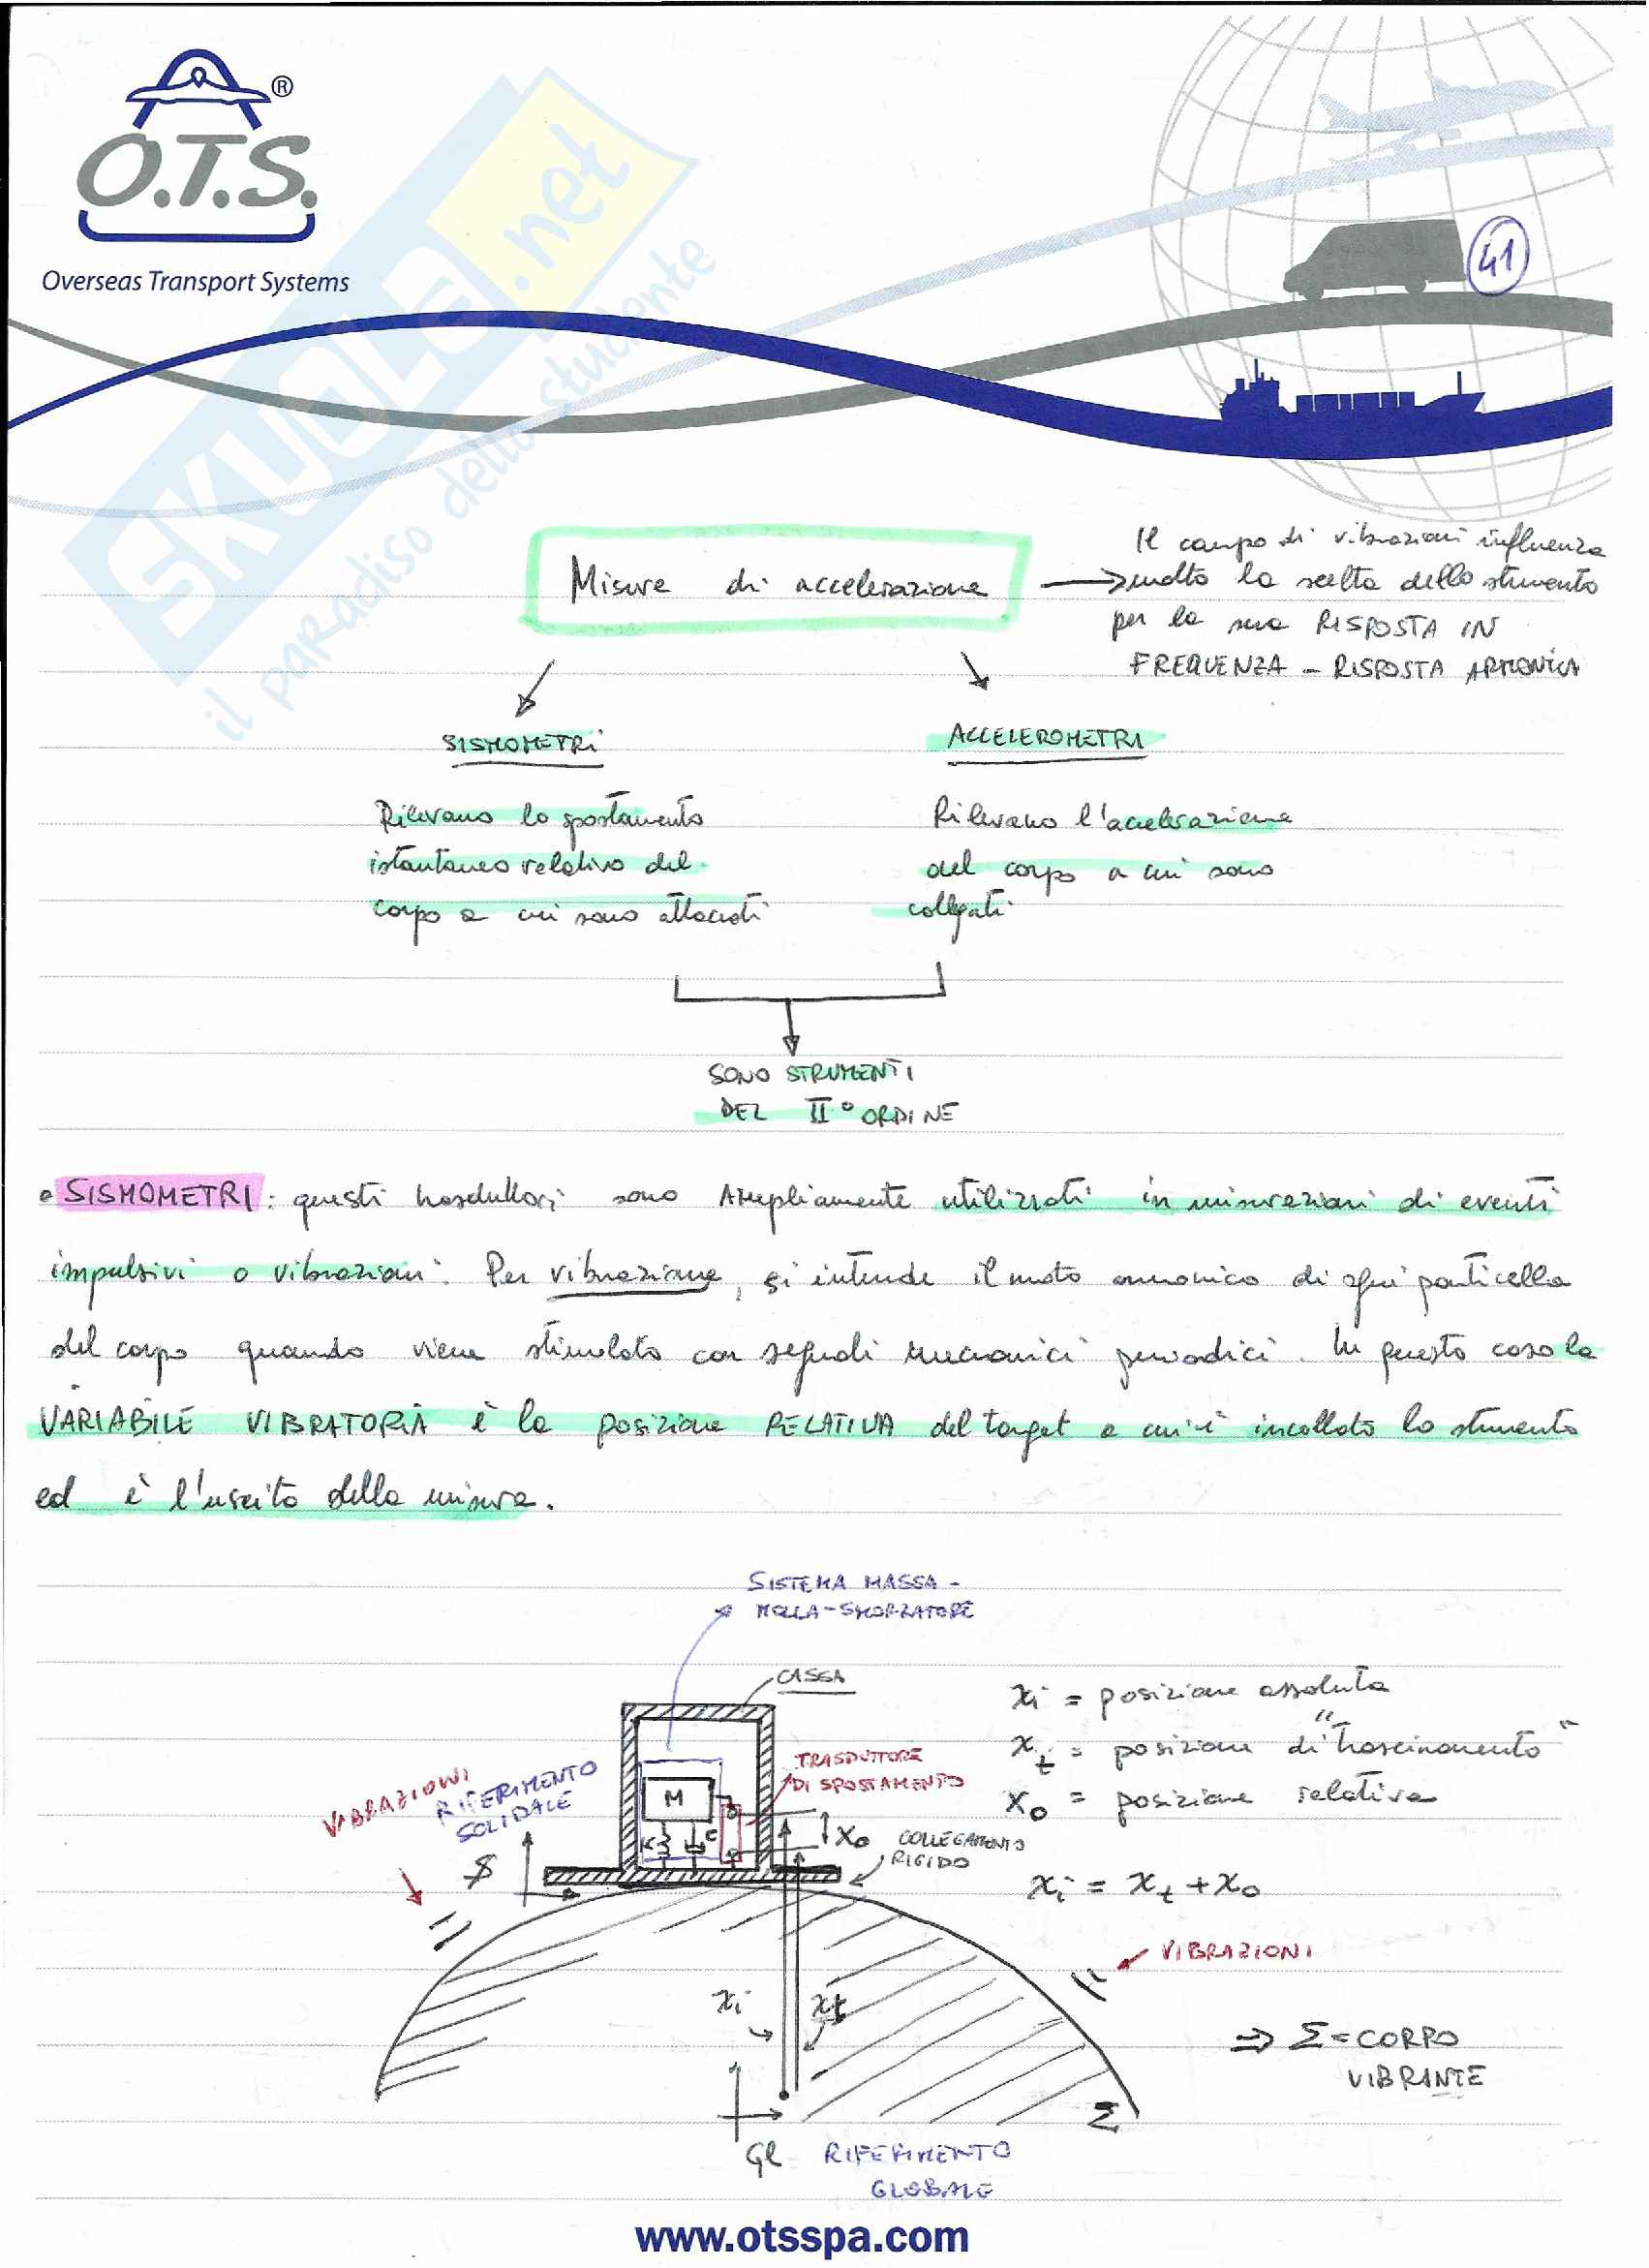 ®
O.T.S.
Overseas Transport Systems
SKUOLA.net
il paradiso dello studente
41
Misure di accelerazione
Il campo di vibrazioni influenza
molto la scelta dello strumento
per la sua RISPOSTA IN
FREQUENZA - RISPOSTA ARMONICA
SISMOMETRI
ACCELEROMETRI
Rilevano lo spostamento
istantaneo relativo del
corpo a cui sono attaccati
Rilevano l'accelerazione
del corpo a cui sono
collegati
SONO STRUMENTI
DEL II° ORDINE
• SISMOMETRI: questi trasduttori sono Ampliamente utilizzati in misurazioni di eventi
impulsivi o vibrazioni. Per vibrazione, si intende il moto armonico di ogni particella
del corpo quando viene stimolato con segnali meccanici periodici. In questo caso la
VARIABILE VIBRATORIA è la posizione RELATIVA del target a cui è incollato lo strumento
ed è l'uscita della misura.
SISTEMA MASSA -
MOLLA-SMORZATORE
CASSA
TRASDUTTORE
DI SPOSTAMENTO
VIBRAZIONI
RIFERIMENTO
SOLIDALE
M
K
C
x₀
COLLEGAMENTO
RIGIDO
xᵢ = posizione assoluta
xₜ = posizione di "trascinamento"
x₀ = posizione relativa
xᵢ = xₜ + x₀
VIBRAZIONI
xᵢ
xₜ
⇒ Σ = CORPO
VIBRANTE
Σ
Gl
RIFERIMENTO
GLOBALE
www.otsspa.com